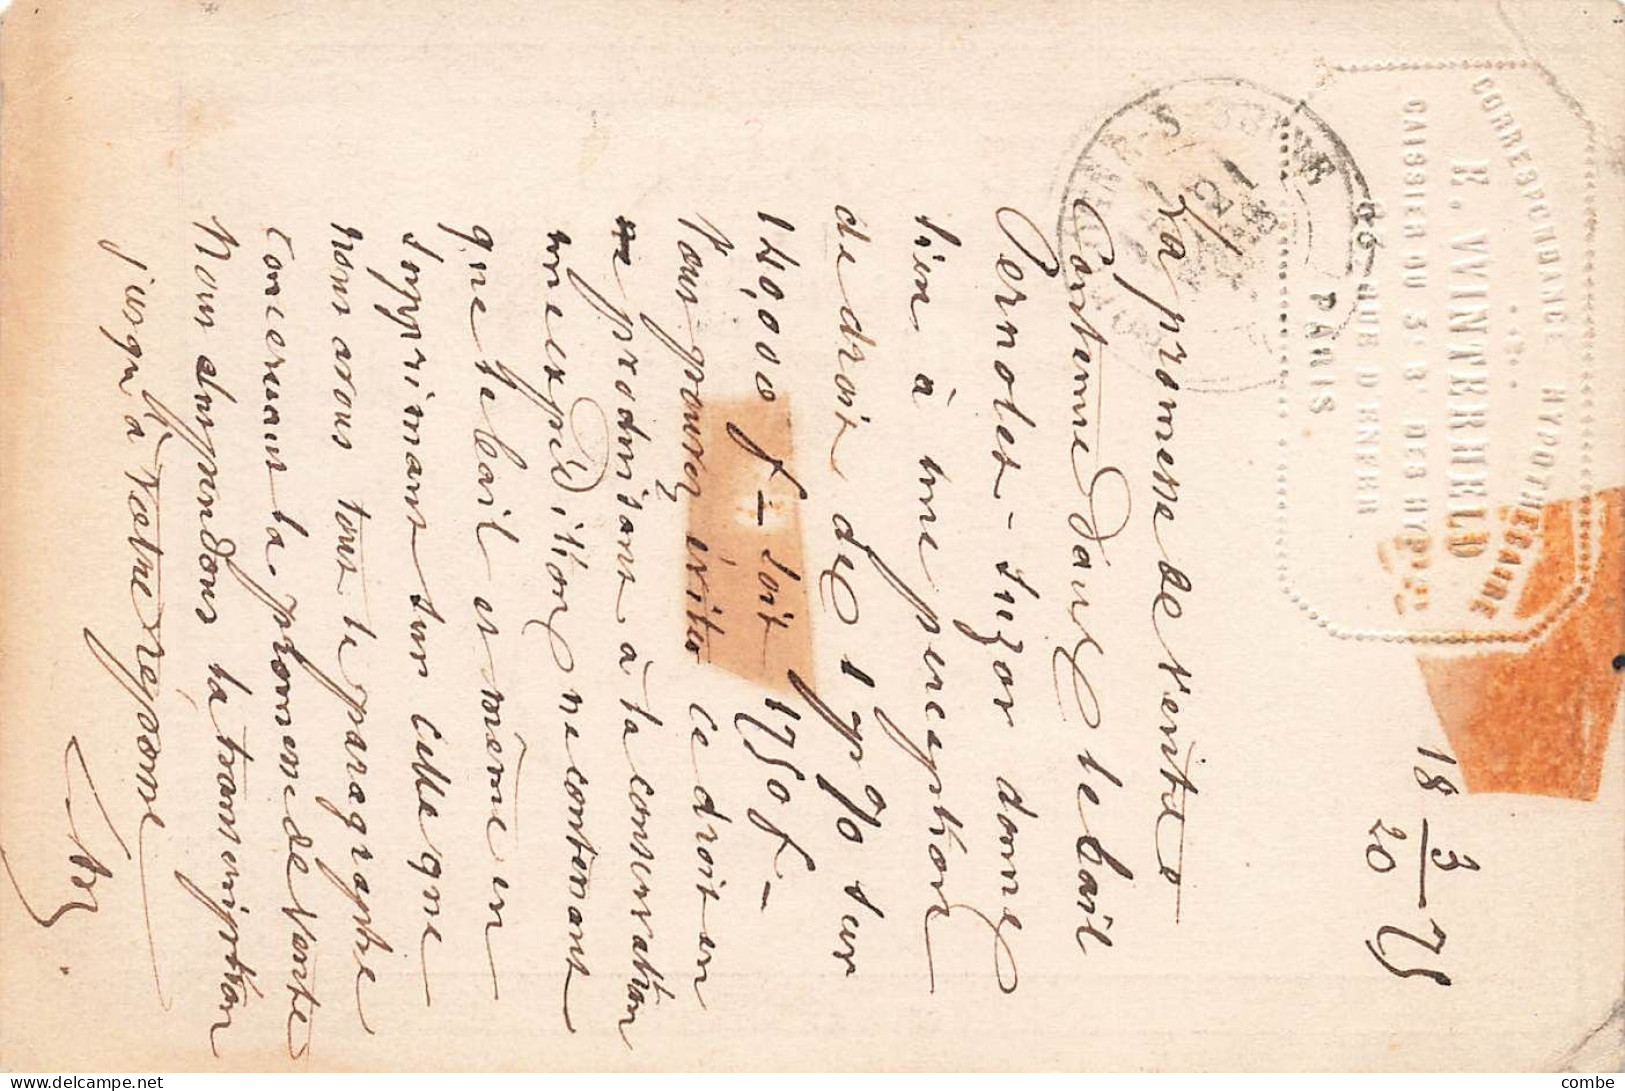 CORRESPONDANCE HYPOTHÉCAIRE
E. WINTERHELD
CAISSIER DU 3e Bau DES HYPes
26 RUE D'ENFER
PARIS
18 3/20 75
La promesse de vente
contenue dans le bail
Pernolet-Suzor donne
lieu à une perception
de droit de 1 fr % sur
140,000 f - soit 1750 f -
Vous pourrez éviter ce droit en
ne produisant à la conservation
une expédition ne contenant
que le bail et même en
supprimant sur celle que
nous avons tout le paragraphe
concernant la promesse de vente
Nous suspendons la transcription
jusqu'à votre réponse
Delcampe.net
combe